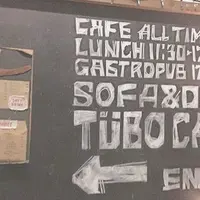 CAFE ALL TIM
LUNCH 11:30-1
GASTROPUB 17
SOFA&O
TÜBO CA
EN